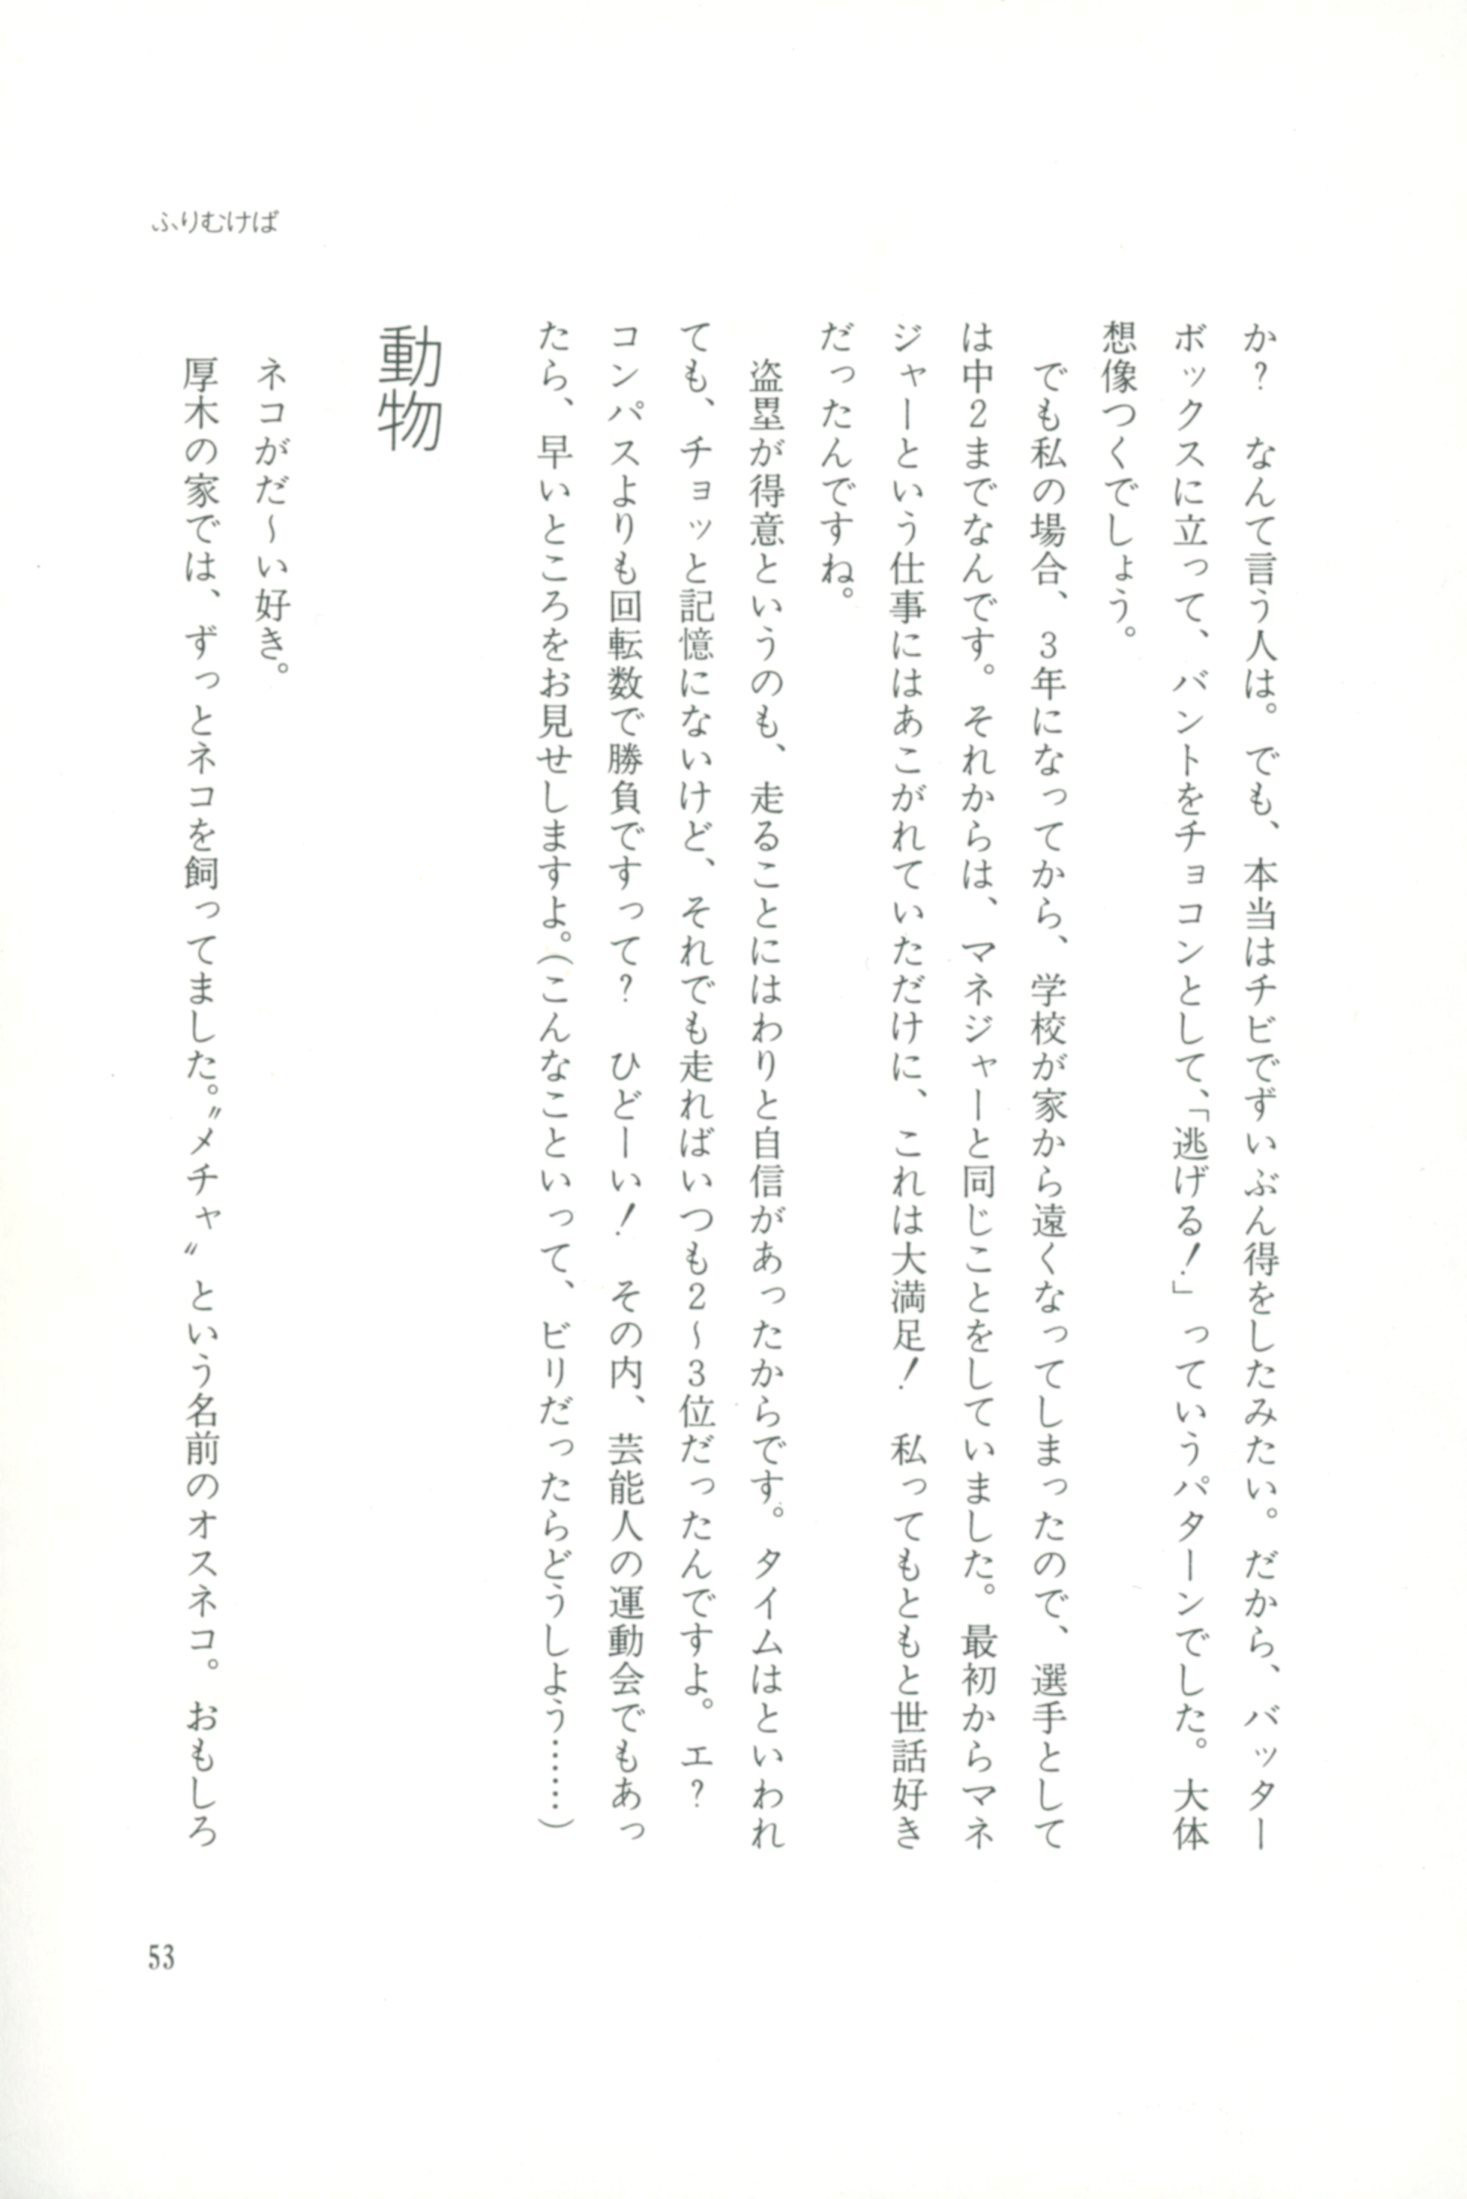 ふりむけば
か？　なんて言う人は。でも、本当はチビでずいぶん得をしたみたい。だから、バッター
ボックスに立って、バントをチョコンとして、「逃げる！」っていうパターンでした。大体
想像つくでしょう。
　でも私の場合、3年になってから、学校が家から遠くなってしまったので、選手として
は中2までなんです。それからは、マネジャーと同じことをしていました。最初からマネ
ジャーという仕事にはあこがれていただけに、これは大満足！　私ってもともと世話好き
だったんですね。
　盗塁が得意というのも、走ることにはわりと自信があったからです。タイムはといわれ
ても、チョッと記憶にないけど、それでも走ればいつも2〜3位だったんですよ。エ？
コンパスよりも回転数で勝負ですって？　ひどーい！　その内、芸能人の運動会でもあっ
たら、早いところをお見せしますよ。（こんなこといって、ビリだったらどうしよう……）
動物
　ネコがだ〜い好き。
　厚木の家では、ずっとネコを飼ってました。〝メチャ〟という名前のオスネコ。おもしろ
53